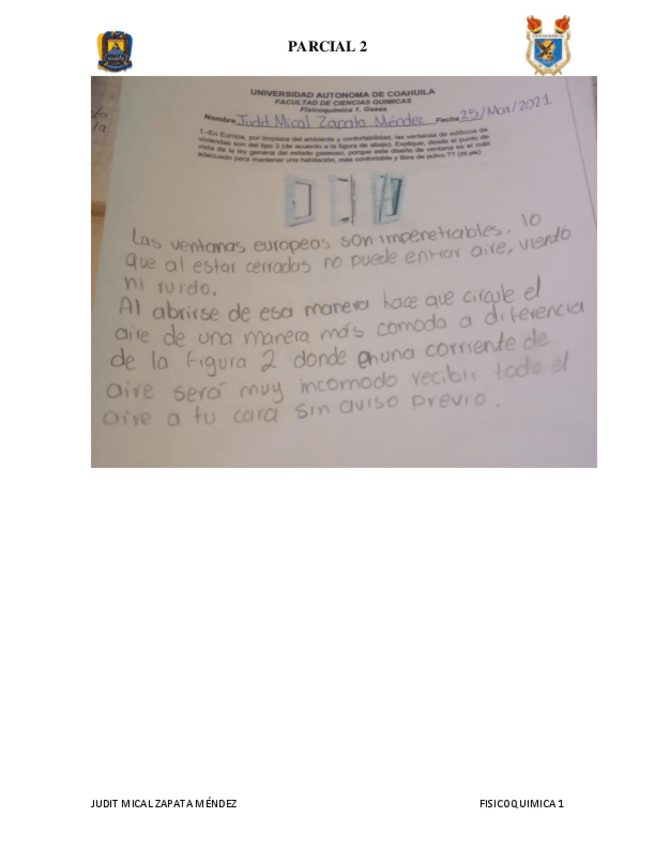 PARCIAL 2
UNIVERSIDAD AUTONOMA DE COAHUILA
FACULTAD DE CIENCIAS QUIMICAS
Fisicoquímica 1. Gases
Nombre Judit Mical Zapata Méndez Fecha 25/Mar/2021
1.-En Europa, por limpieza del ambiente y confortabilidad, las ventanas de edificios de
viviendas son del tipo 3 (de acuerdo a la figura de abajo). Explique, desde el punto de
vista de la ley general del estado gaseoso, porque este diseño de ventana es el más
adecuado para mantener una habitación, más confortable y libre de polvo.??
Las ventanas europeas son impenetrables. lo
que al estar cerradas no puede entrar aire, viento
ni ruido.
Al abrirse de esa manera hace que circule el
aire de una manera más comoda a diferencia
de la figura 2 donde en una corriente de
aire será muy incomodo recibir todo el
aire a tu cara sin aviso previo.
JUDIT MICAL ZAPATA MÉNDEZ FISICOQUIMICA 1